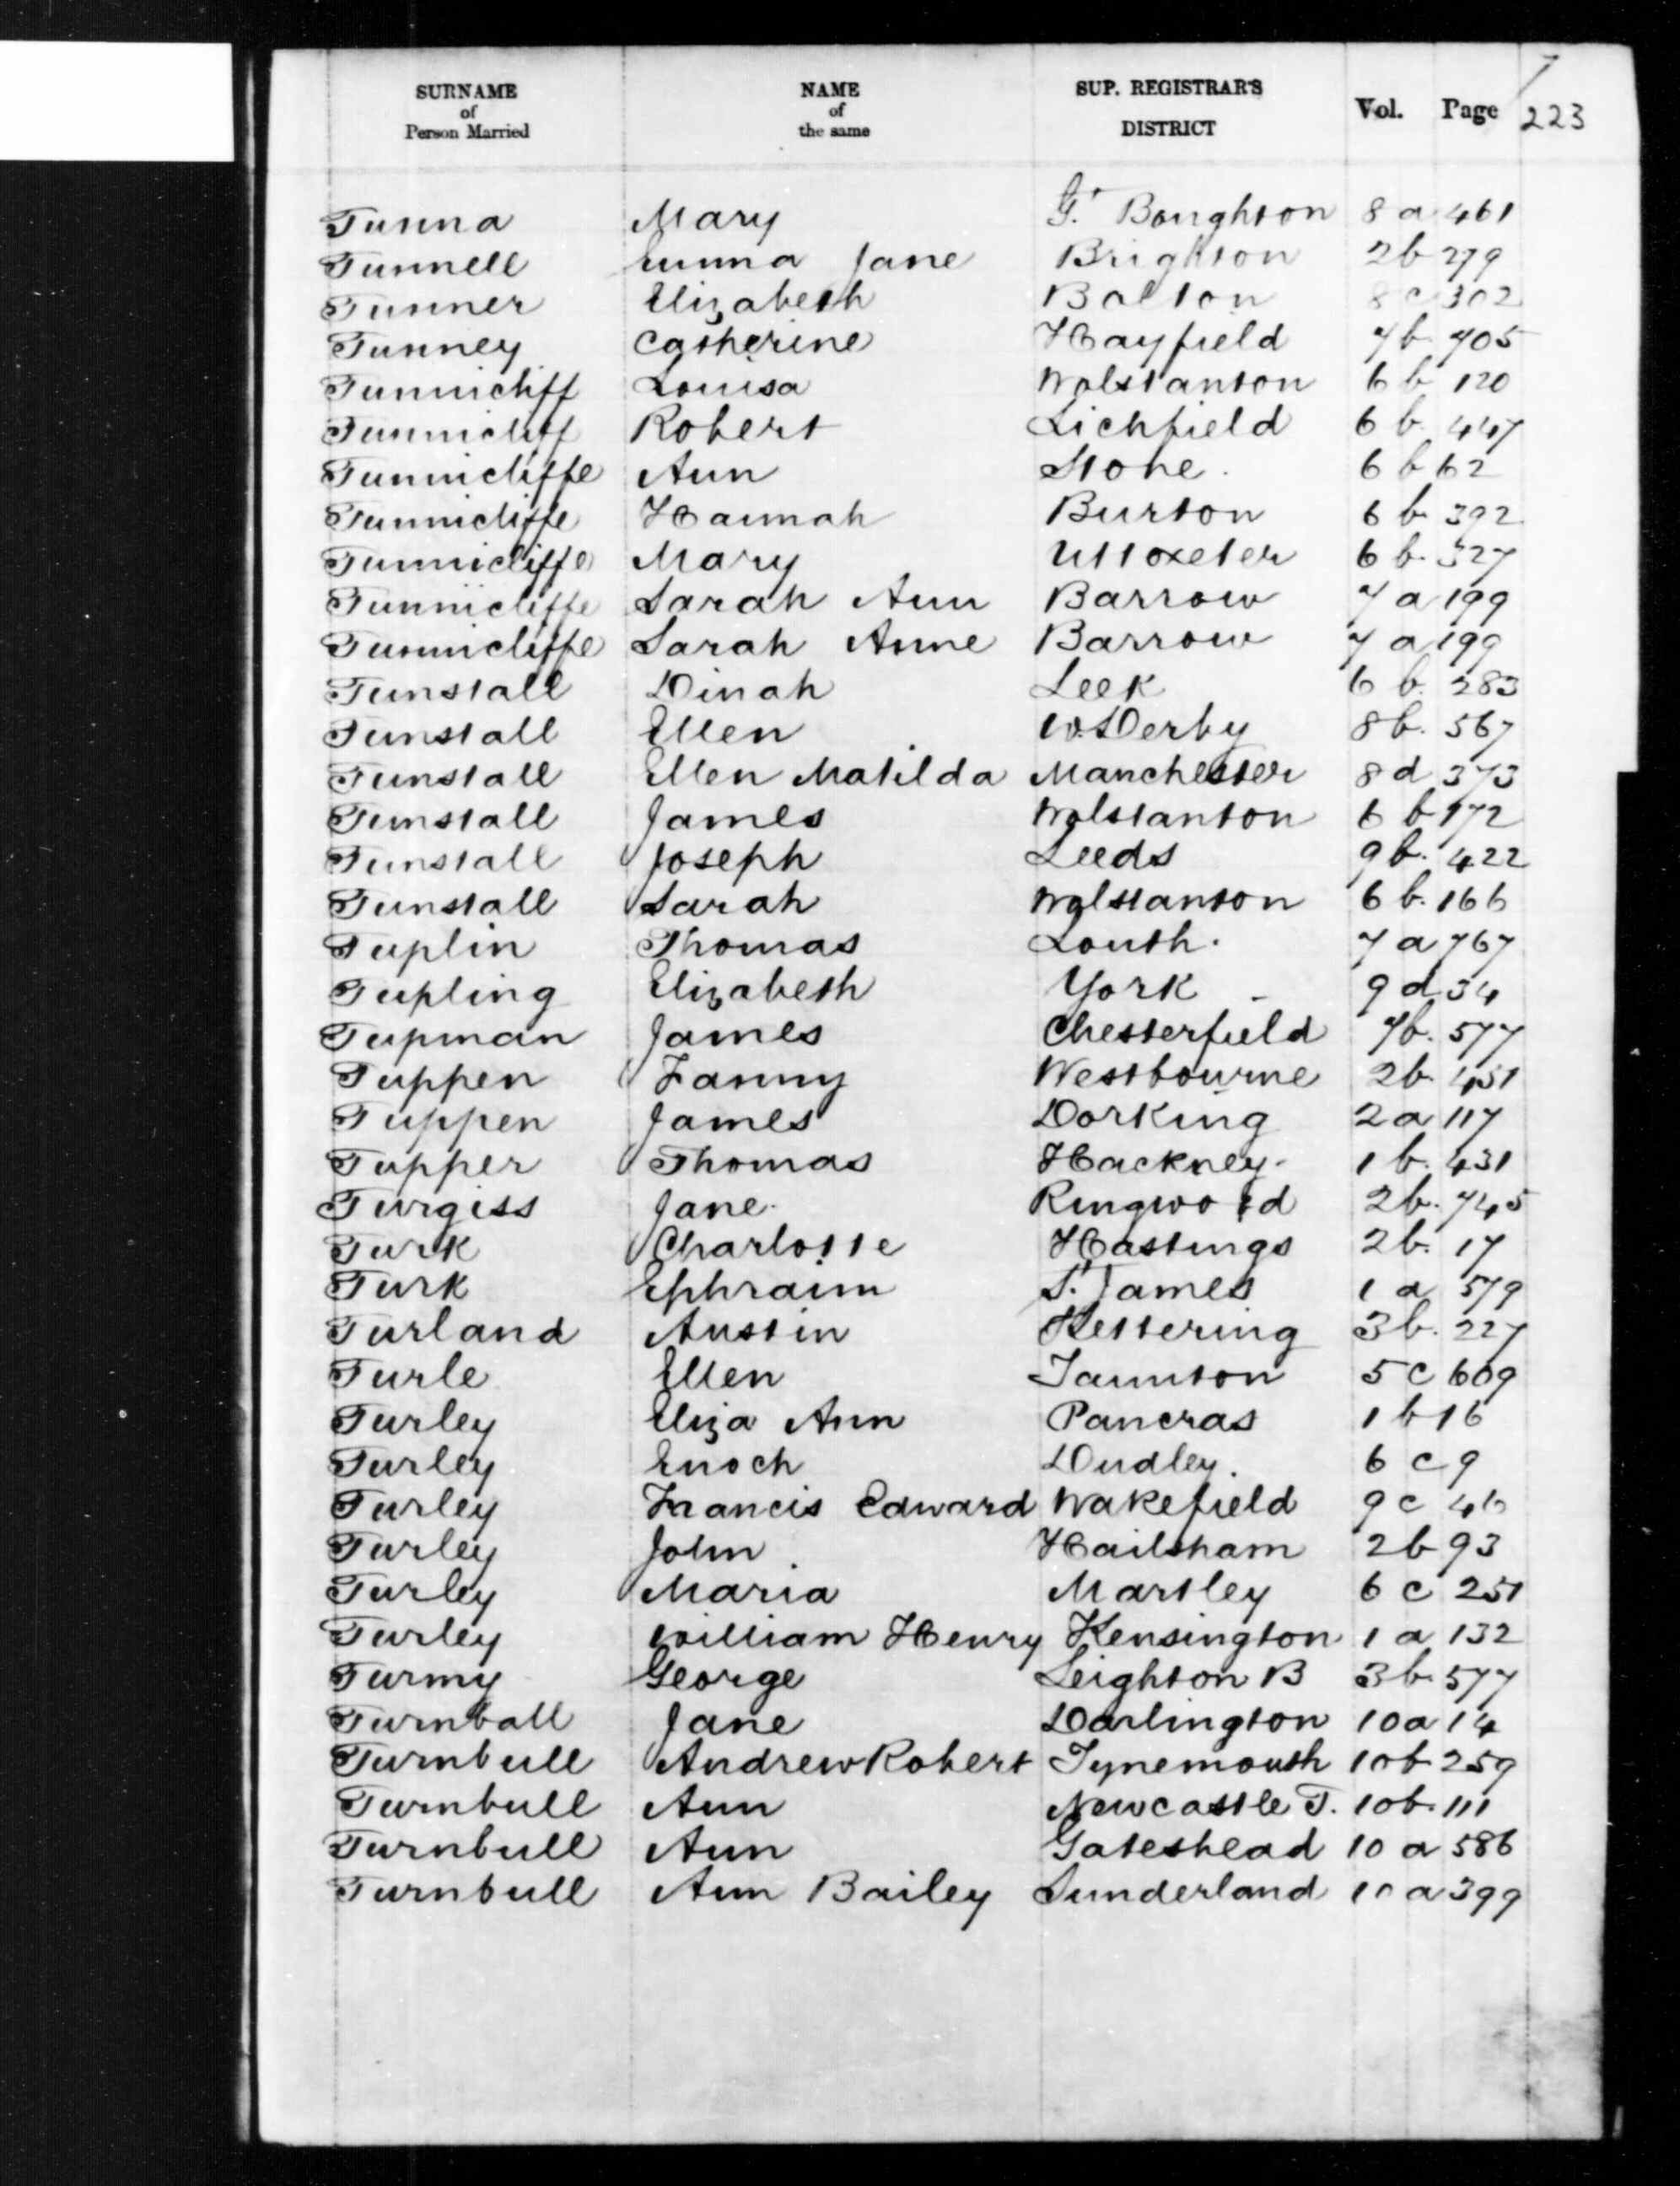 SURNAME of Person Married NAME of the same SUP. REGISTRAR'S DISTRICT Vol. Page 223
Tunna Mary Gt. Boughton 8 a 461
Tunnell Emma Jane Brighton 2b 279
Tunner Elizabeth Bolton 8 c 302
Tunney Catherine Hayfield 7b 705
Tunnicliff Louisa Wolstanton 6 b 120
Tunnicliff Robert Lichfield 6 b. 447
Tunnicliffe Ann Stone. 6 b 62
Tunnicliffe Hannah Burton 6 b 392
Tunnicliffe Mary Uttoxeter 6 b. 327
Tunnicliffe Sarah Ann Barrow 7 a 199
Tunnicliffe Sarah Anne Barrow 7 a 199
Tunstall Dinah Leek 6 b. 283
Tunstall Ellen W. Derby 8b. 567
Tunstall Ellen Matilda Manchester 8 d 373
Tunstall James Wolstanton 6 b 172
Tunstall Joseph Leeds 9b. 422
Tunstall Sarah Wolstanton 6 b. 166
Tuplin Thomas Louth. 7 a 767
Tupling Elizabeth York 9 d 34
Tupman James Chesterfield 7b. 577
Tuppen Fanny Westbourne 2b 451
Tuppen James Dorking 2 a 117
Tupper Thomas Hackney. 1 b. 431
Turgiss Jane. Ringwood 2b. 745
Turk Charlotte Hastings 2b. 17
Turk Ephraim St. James 1 a 579
Turland Austin Kettering 3b. 227
Turle Ellen Taunton 5 c 609
Turley Eliza Ann Pancras 1 b 16
Turley Enoch Dudley. 6 c 9
Turley Francis Edward Wakefield 9 c 46
Turley John Hailsham 2b 93
Turley Maria Martley 6 c 251
Turley William Henry Kensington 1 a 132
Turmy George Leighton B 3b 577
Turnball Jane Darlington 10a 14
Turnbull Andrew Robert Tynemouth 10b 259
Turnbull Ann Newcastle T. 10b. 111
Turnbull Ann Gateshead 10 a 586
Turnbull Ann Bailey Sunderland 10 a 399